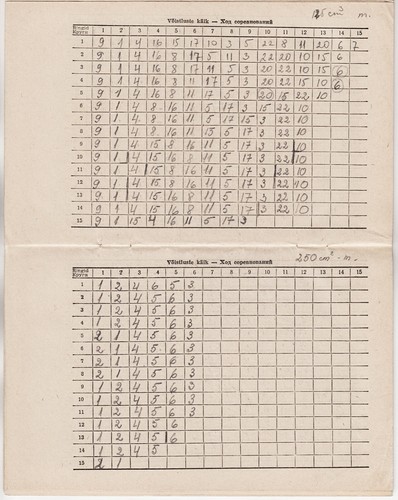 cm³ m.
Võistluste käik — Ход соревнований
Ringid Круги 1 2 3 4 5 6 7 8 9 10 11 12 13 14 15
1 9 1 4 16 15 17 10 3 5 22 8 11 20 6 7
2 9 1 4 16 8 17 5 11 3 22 20 10 15 6
3 9 1 4 16 8 17 11 5 3 20 22 10 15 6
4 9 1 4 16 8 11 17 5 3 20 22 15 10 6
5 9 1 4 16 8 11 17 5 3 20 15 22 10
6 9 1 4 8 16 11 5 17 3 15 22 10
7 9 1 4 8 16 11 5 17 15 3 22 10
8 9 1 4 8 16 11 15 5 17 3 22 10
9 9 1 4 15 8 16 11 5 17 3 22 10
10 9 1 4 15 16 8 11 5 17 3 22 10
11 9 1 4 15 8 16 11 5 17 3 22 10
12 9 1 4 15 8 16 11 5 17 3 22 10
13 9 1 4 15 16 8 11 5 17 3 22 10
14 9 1 4 15 16 8 11 5 17 3 22 10
15 9 1 15 4 16 11 5 17 3
250 cm³ - m.
Võistluste käik — Ход соревнований
Ringid Круги 1 2 3 4 5 6 7 8 9 10 11 12 13 14 15
1 1 2 4 6 5 3
2 1 2 4 5 6 3
3 1 2 4 5 6 3
4 1 2 4 5 6 3
5 2 1 4 5 6 3
6 1 2 4 5 6 3
7 2 1 4 5 6 3
8 2 1 4 5 6 3
9 1 2 4 5 6 3
10 1 2 4 5 6 3
11 1 2 4 5 6 3
12 1 2 4 5 6
13 1 2 4 5 6
14 1 2 4 5
15 2 1